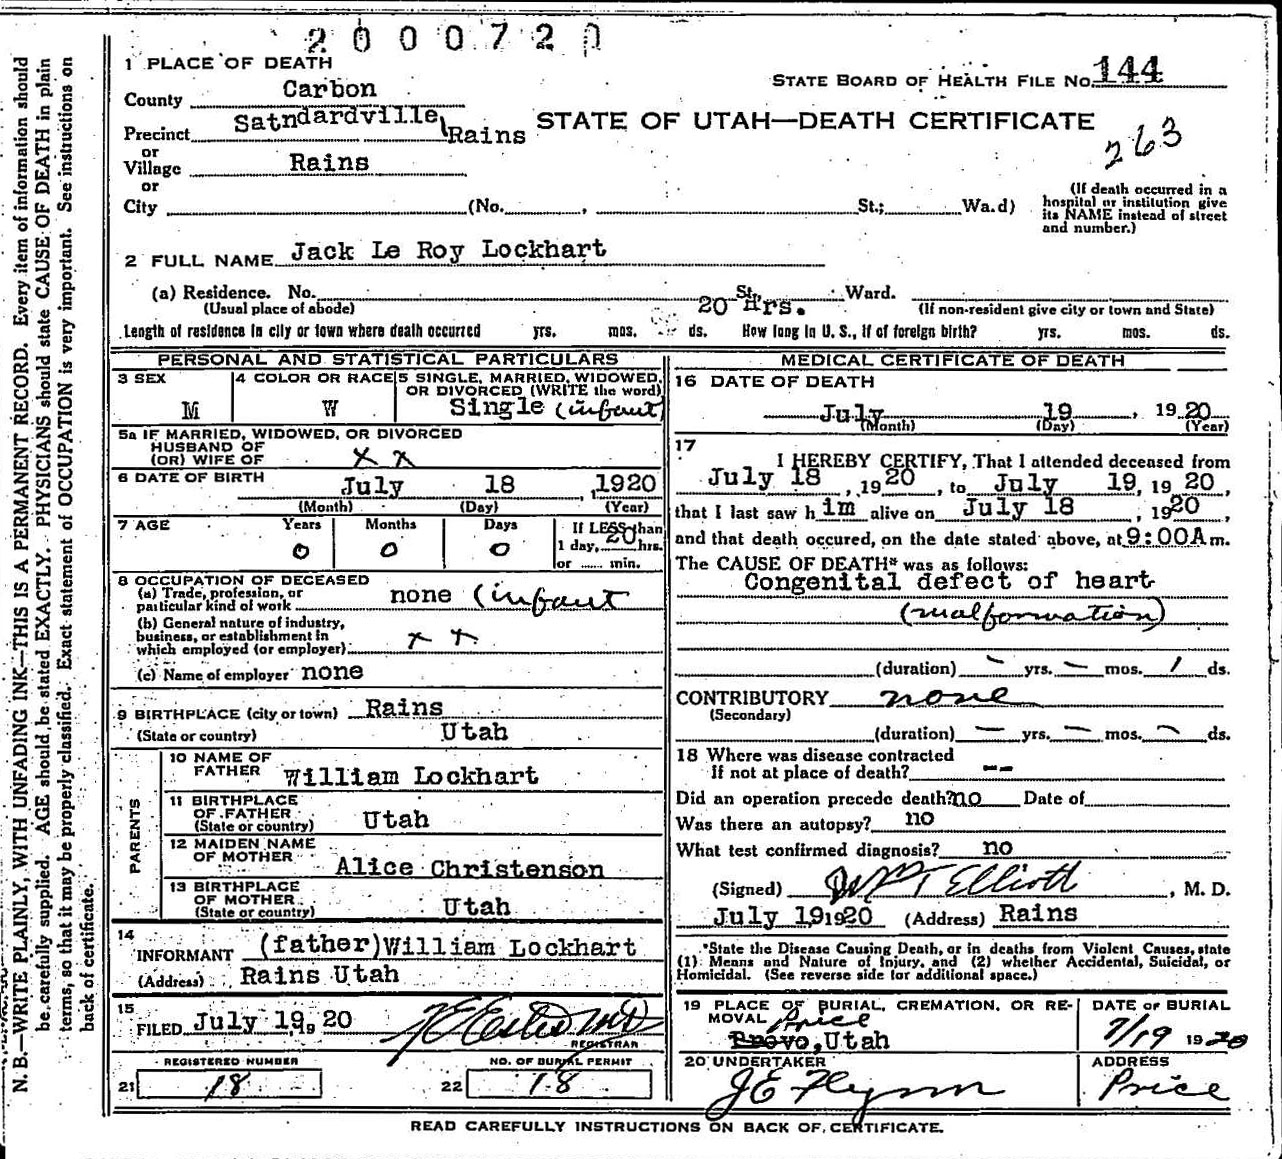 2000720
1 PLACE OF DEATH
STATE BOARD OF HEALTH FILE No. 144
County Carbon
Precinct Satndardville, Rains
STATE OF UTAH—DEATH CERTIFICATE
263
or
Village Rains
or
City (No. , St.; Wa.d)
(If death occurred in a
hospital or institution give
its NAME instead of street
and number.)
2 FULL NAME Jack Le Roy Lockhart
(a) Residence. No. St., Ward.
(Usual place of abode) 20 Hrs. (If non-resident give city or town and State)
Length of residence in city or town where death occurred yrs. mos. ds. How long in U. S., if of foreign birth? yrs. mos. ds.
PERSONAL AND STATISTICAL PARTICULARS
3 SEX M
4 COLOR OR RACE W
5 SINGLE, MARRIED, WIDOWED,
OR DIVORCED (WRITE the word)
Single (infant)
5a IF MARRIED, WIDOWED, OR DIVORCED
HUSBAND OF
(OR) WIFE OF x x
6 DATE OF BIRTH July 18, 1920
(Month) (Day) (Year)
7 AGE Years Months Days If LESS than
0 0 0 1 day, 20 hrs.
or ...... min.
8 OCCUPATION OF DECEASED
(a) Trade, profession, or
particular kind of work none (infant
(b) General nature of industry,
business, or establishment in
which employed (or employer) x x
(c) Name of employer none
9 BIRTHPLACE (city or town) Rains
(State or country) Utah
PARENTS
10 NAME OF
FATHER William Lockhart
11 BIRTHPLACE
OF FATHER
(State or country) Utah
12 MAIDEN NAME
OF MOTHER Alice Christenson
13 BIRTHPLACE
OF MOTHER
(State or country) Utah
14
INFORMANT (father) William Lockhart
(Address) Rains Utah
15
FILED July 19, 1920
REGISTRAR
REGISTERED NUMBER
21 18
NO. OF BURIAL PERMIT
22 18
MEDICAL CERTIFICATE OF DEATH
16 DATE OF DEATH
July 19, 1920
(Month) (Day) (Year)
17
I HEREBY CERTIFY, That I attended deceased from
July 18, 1920, to July 19, 1920,
that I last saw h im alive on July 18, 1920,
and that death occured, on the date stated above, at 9:00A m.
The CAUSE OF DEATH* was as follows:
Congenital defect of heart
(malformation)
(duration) – yrs. – mos. 1 ds.
CONTRIBUTORY none
(Secondary)
(duration) – yrs. – mos. – ds.
18 Where was disease contracted
if not at place of death? --
Did an operation precede death? no Date of
Was there an autopsy? no
What test confirmed diagnosis? no
(Signed) Elliott, M. D.
July 19 1920 (Address) Rains
*State the Disease Causing Death, or in deaths from Violent Causes, state
(1) Means and Nature of Injury, and (2) whether Accidental, Suicidal, or
Homicidal. (See reverse side for additional space.)
19 PLACE OF BURIAL, CREMATION, OR RE-
MOVAL Price
Provo, Utah
DATE OF BURIAL
7/19 1920
20 UNDERTAKER
J E Flynn
ADDRESS
Price
READ CAREFULLY INSTRUCTIONS ON BACK OF CERTIFICATE.
N. B.—WRITE PLAINLY, WITH UNFADING INK—THIS IS A PERMANENT RECORD. Every item of information should
be carefully supplied. AGE should be stated EXACTLY. PHYSICIANS should state CAUSE OF DEATH in plain
terms, so that it may be properly classified. Exact statement of OCCUPATION is very important. See instructions on
back of certificate.